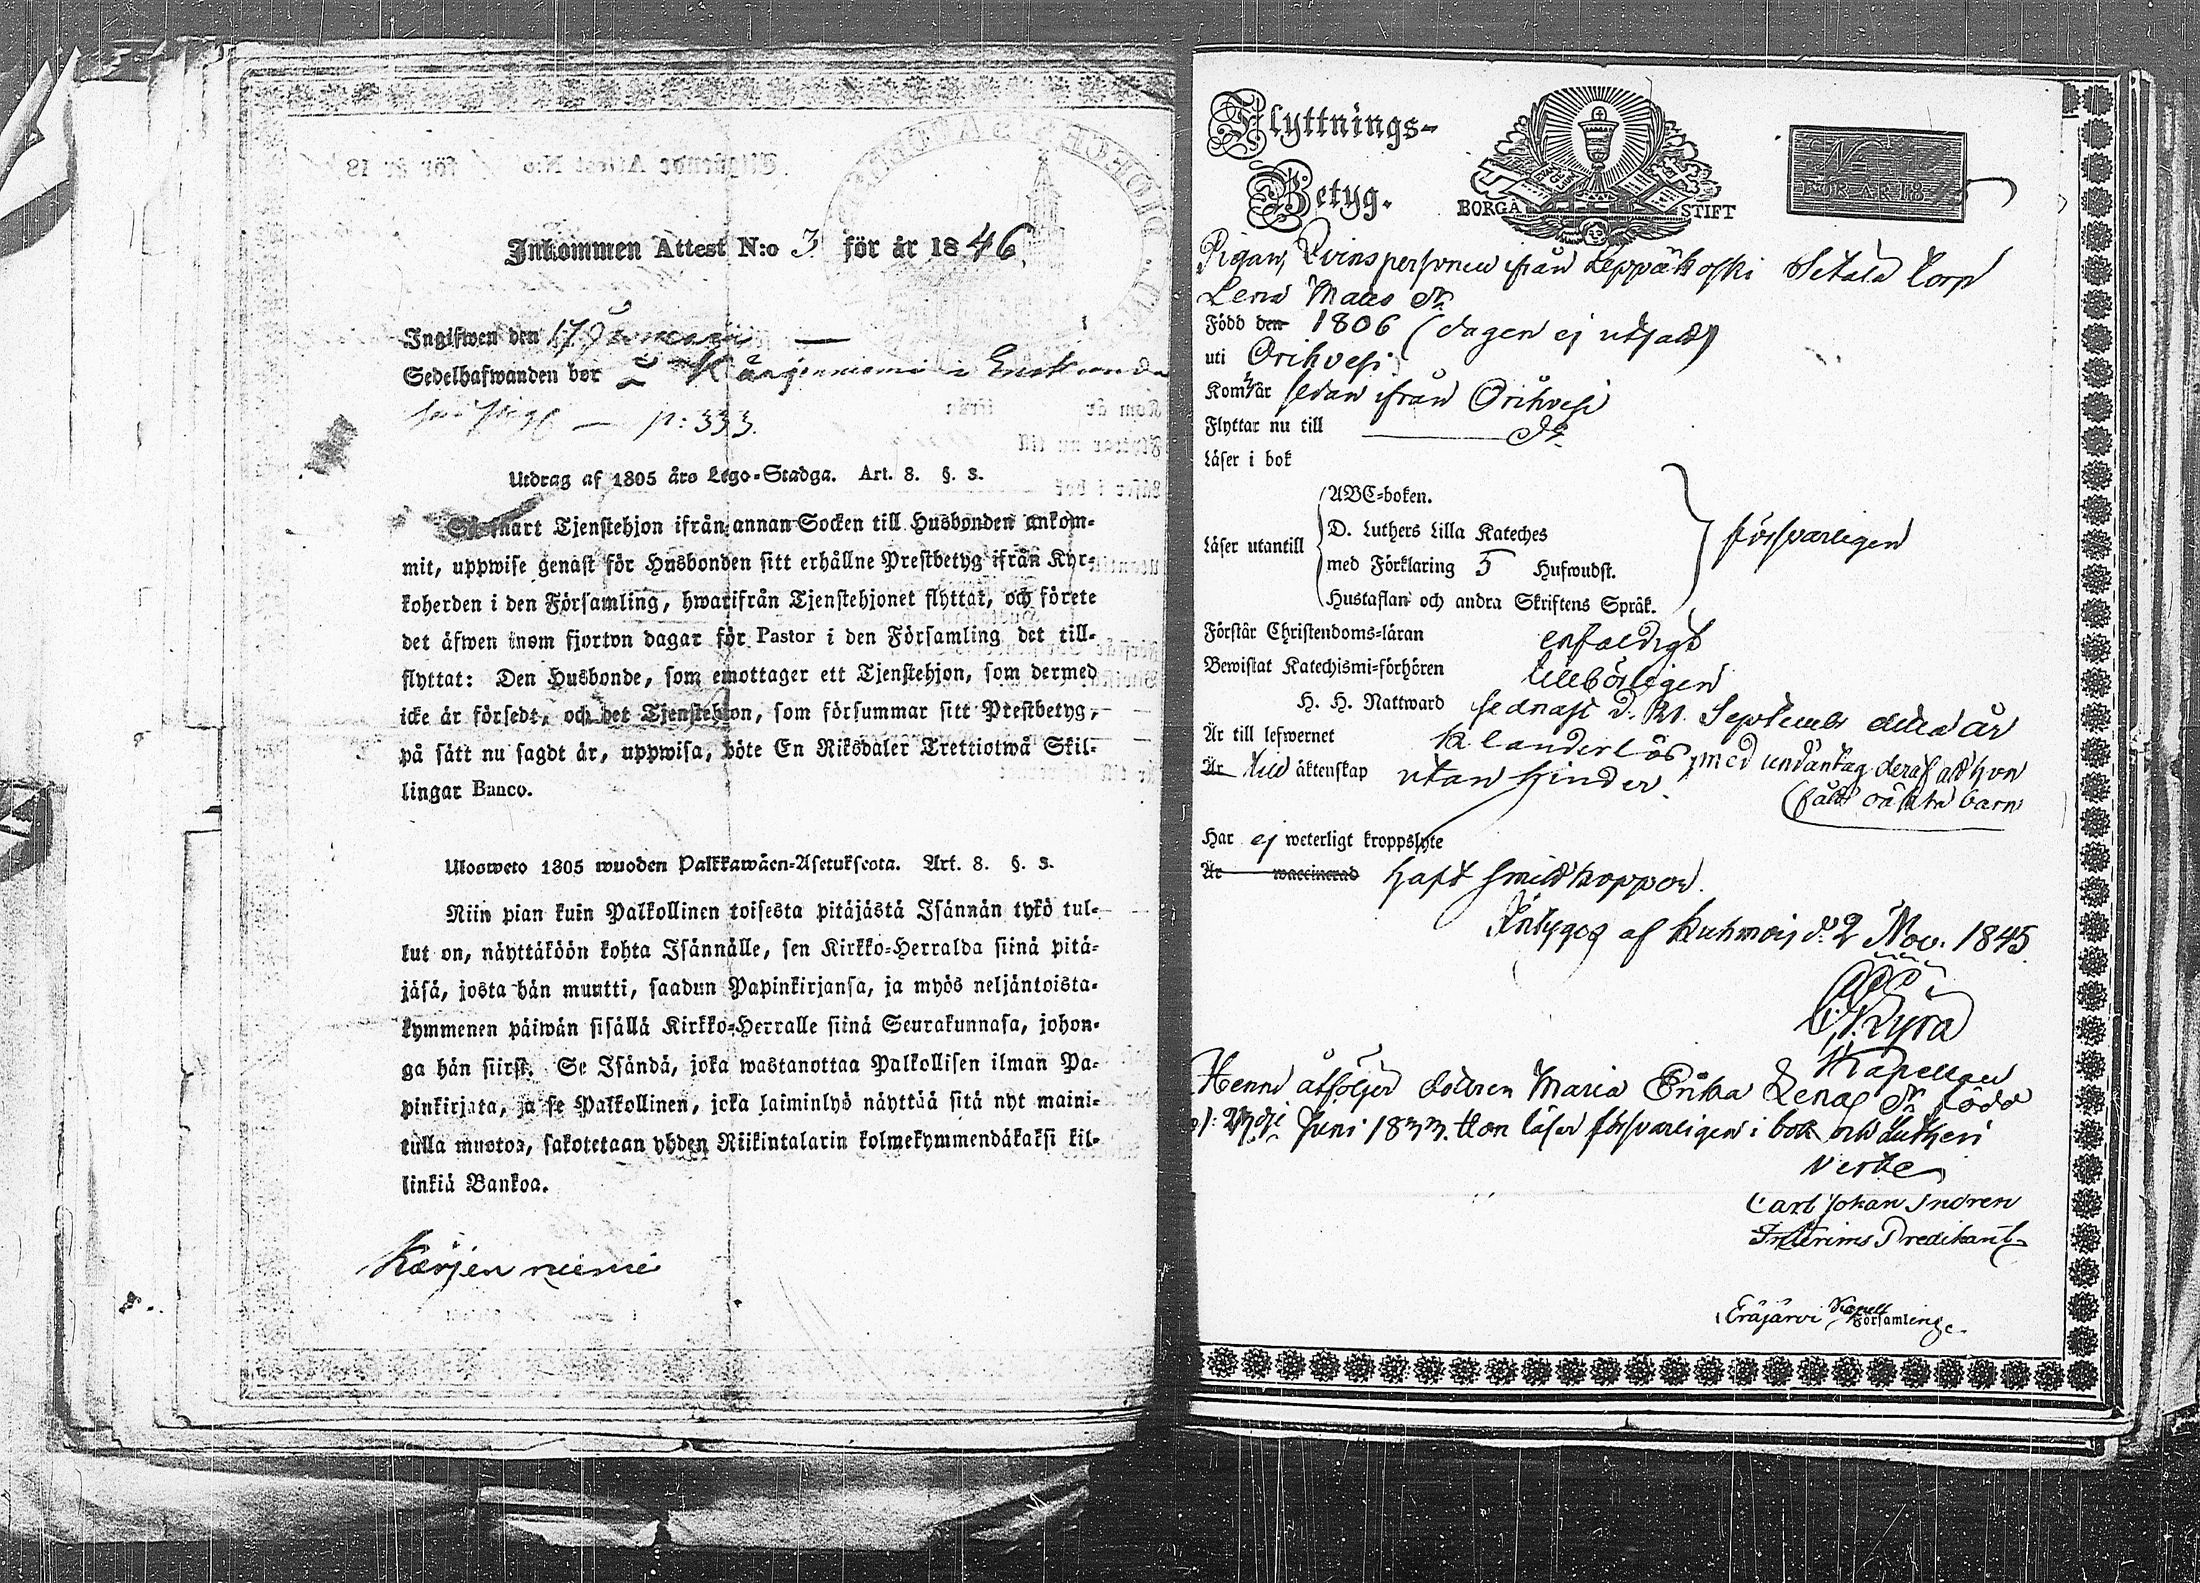 Inkommen Attest N:o 3 för år 1846
Ingifwen den 17 Januari
Sedelhafwanden bor i Kärjenniemi i
p: 333.
Utdrag af 1805 års Lego-Stadga. Art. 8. §. 3.
Så snart Tjenstehjon ifrån annan Socken till Husbonden ankom-
mit, uppwise genast för Husbonden sitt erhållne Prestbetyg ifrån Kyr-
koherden i den Församling, hwarifrån Tjenstehjonet flyttat, och förete
det äfwen inom fjorton dagar för Pastor i den Församling det till-
flyttat: Den Husbonde, som emottager ett Tjenstehjon, som dermed
icke är försedt, och det Tjenstehjon, som försummar sitt Prestbetyg,
på sätt nu sagdt är, uppwisa, böte En Riksdaler Trettiotwå Skil-
lingar Banco.
Ulosweto 1805 wuoden Palkkawäen-Asetuksesta. Art. 8. §. 3.
Niin pian kuin Palkollinen toisesta pitäjästä Isännän tykö tul-
lut on, näyttäköön kohta Isännälle, sen Kirkko-Herralda siinä pitä-
jäsä, josta hän muutti, saadun Papinkirjansa, ja myös neljäntoista-
kymmenen päiwän sisällä Kirkko-Herralle siinä Seurakunnasa, johon-
ga hän siirsi. Se Isändä, joka wastanottaa Palkollisen ilman Pa-
pinkirjata, ja se Palkollinen, joka laiminlyö näyttää sitä nyt maini-
tulla muotoa, sakotetaan yhden Riikintalarin kolmekymmendäkaksi kil-
linkiä Bankoa.
Kärjenniemi
Flyttnings-
Betyg.
BORGÅ STIFT
N
FÖR ÅR 18
Pigan, Qvinspersonen ifrån Leppäkoski Setälä torp
Lena Maas Dr
Född den 1806 (dagen ej utsatt)
uti Orihvesi
Kom år sedan ifrån Orihvesi
Flyttar nu till do
Läser i bok
ABC-boken.
D. Luthers Lilla Kateches
Läser utantill
med Förklaring 5 Hufwudst.
Hustaflan och andra Skriftens Språk.
försvarligen
Förstår Christendoms-läran enfaldigt
Bewistat Katechismi-förhören tillbörligen
H. H. Nattward sednast d. 21 September detta år
Är till lefwernet klanderlös, med undantag deraf att hon
fått oäkta barn
Är till äktenskap utan hinder.
Har ej weterligt kroppslyte
Är waccinerad haft smittkoppor.
Intygas af Kuhmois d. 2 Nov. 1845.
Lyra
Kapellan
Henne åtföljer dottren Maria Erika Lenas Dr född
d: Juni 1833. Hon läser försvarligen i bok och Lutheri
Carl Johan Indren
Interims Predikant
Eräjärvi Kapell Församling